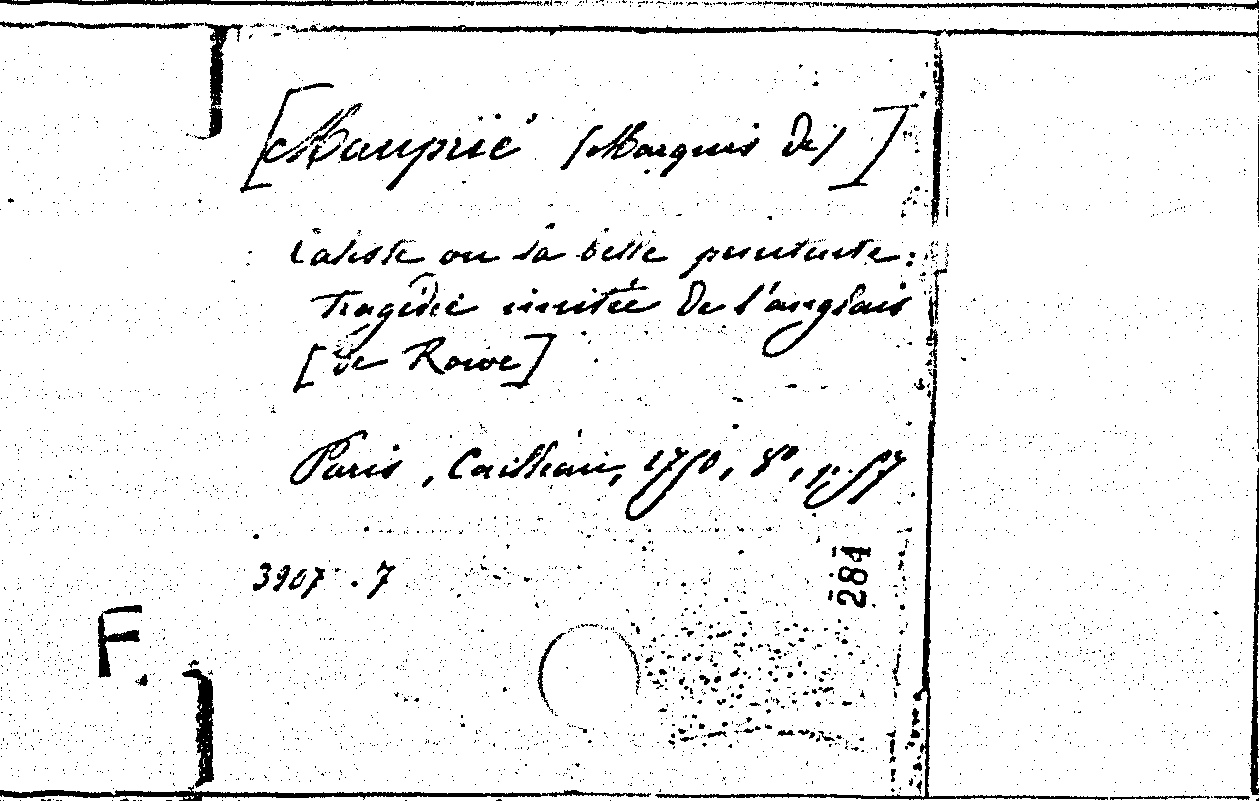 [Mauprié (Marquis de)]
Caliste ou la belle penitente:
Tragédie imitée de l'anglais
[de Rowe]
Paris, Cailleau, 1750, 8°, p. 57
3907.7
284
F.